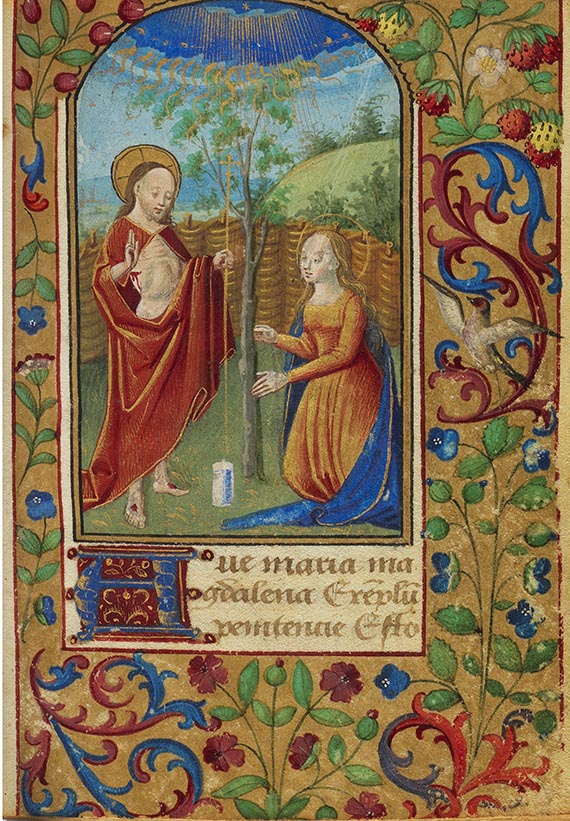 Aue maria ma
gdalena Exēplū
penitencie Esto